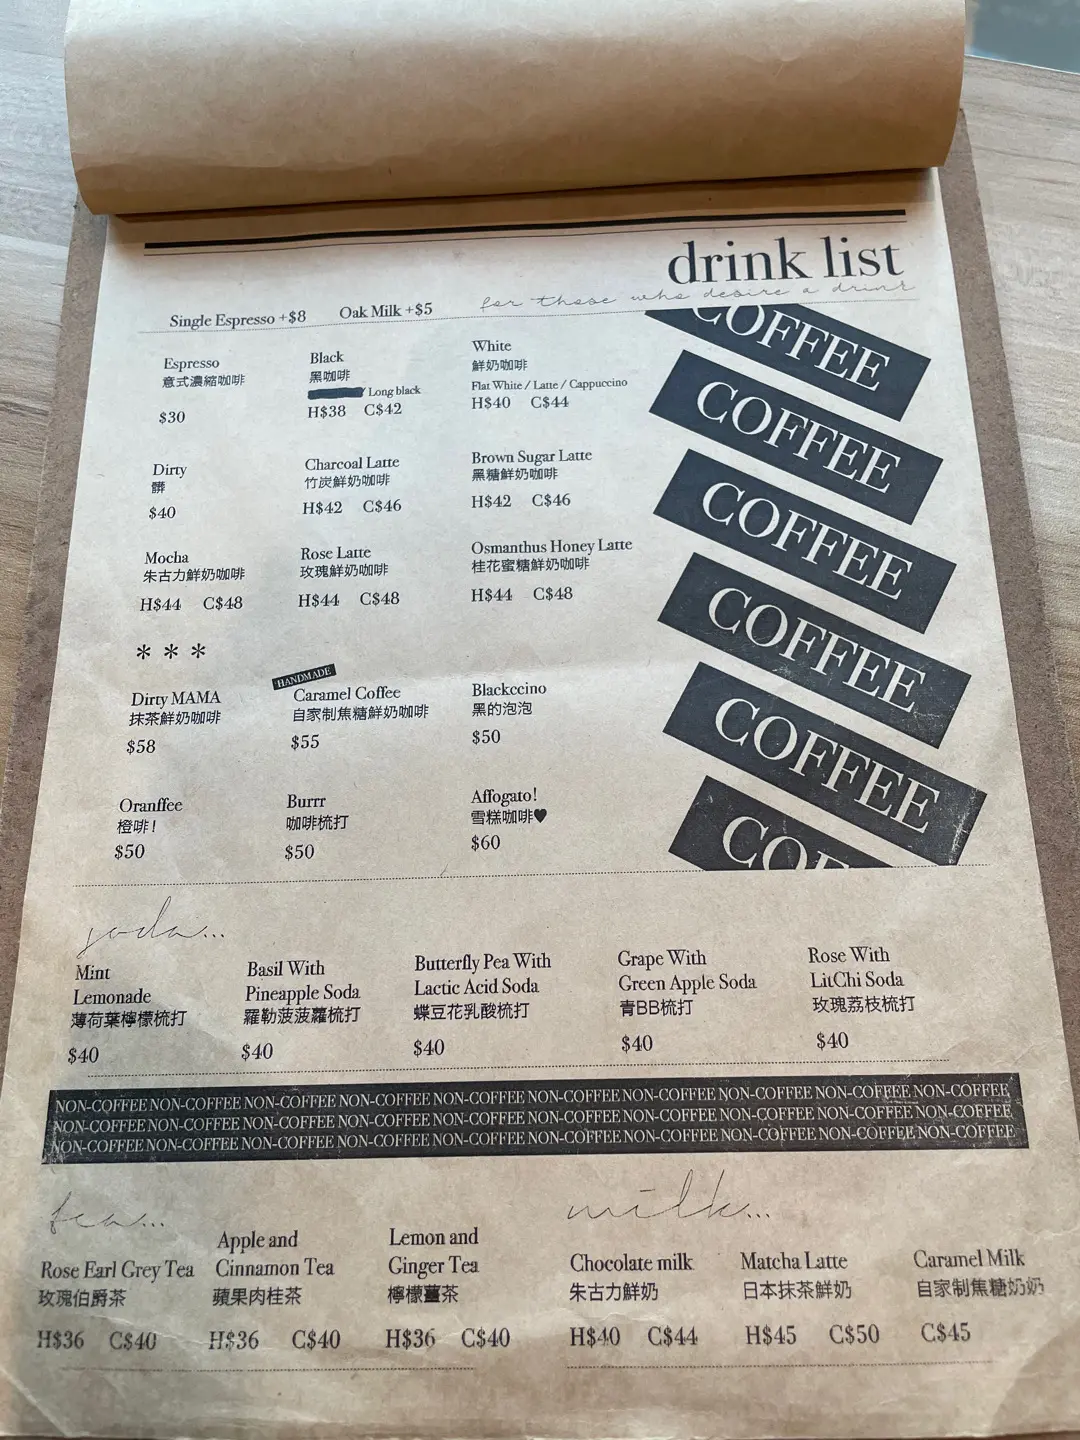 drink list
for those who desire a drink
Single Espresso +$8 Oak Milk +$5
Espresso
意式濃縮咖啡
$30
Black
黑咖啡
/ Long black
H$38 C$42
White
鮮奶咖啡
Flat White / Latte / Cappuccino
H$40 C$44
Dirty
髒
$40
Charcoal Latte
竹炭鮮奶咖啡
H$42 C$46
Brown Sugar Latte
黑糖鮮奶咖啡
H$42 C$46
Mocha
朱古力鮮奶咖啡
H$44 C$48
Rose Latte
玫瑰鮮奶咖啡
H$44 C$48
Osmanthus Honey Latte
桂花蜜糖鮮奶咖啡
H$44 C$48
***
Dirty MAMA
抹茶鮮奶咖啡
$58
HANDMADE
Caramel Coffee
自家制焦糖鮮奶咖啡
$55
Blackccino
黑的泡泡
$50
Oranffee
橙啡!
$50
Burrr
咖啡梳打
$50
Affogato!
雪糕咖啡♥
$60
COFFEE
COFFEE
COFFEE
COFFEE
COFFEE
COFFEE
soda...
Mint
Lemonade
薄荷葉檸檬梳打
$40
Basil With
Pineapple Soda
羅勒菠菠蘿梳打
$40
Butterfly Pea With
Lactic Acid Soda
蝶豆花乳酸梳打
$40
Grape With
Green Apple Soda
青BB梳打
$40
Rose With
LitChi Soda
玫瑰荔枝梳打
$40
NON-COFFEE NON-COFFEE NON-COFFEE NON-COFFEE NON-COFFEE NON-COFFEE NON-COFFEE NON-COFFEE NON-COFFEE NON-COFFEE
NON-COFFEE NON-COFFEE NON-COFFEE NON-COFFEE NON-COFFEE NON-COFFEE NON-COFFEE NON-COFFEE NON-COFFEE NON-COFFEE
NON-COFFEE NON-COFFEE NON-COFFEE NON-COFFEE NON-COFFEE NON-COFFEE NON-COFFEE NON-COFFEE NON-COFFEE NON-COFFEE
tea...
Rose Earl Grey Tea
玫瑰伯爵茶
H$36 C$40
Apple and
Cinnamon Tea
蘋果肉桂茶
H$36 C$40
Lemon and
Ginger Tea
檸檬薑茶
H$36 C$40
milk...
Chocolate milk
朱古力鮮奶
H$40 C$44
Matcha Latte
日本抹茶鮮奶
H$45 C$50
Caramel Milk
自家制焦糖奶奶
C$45